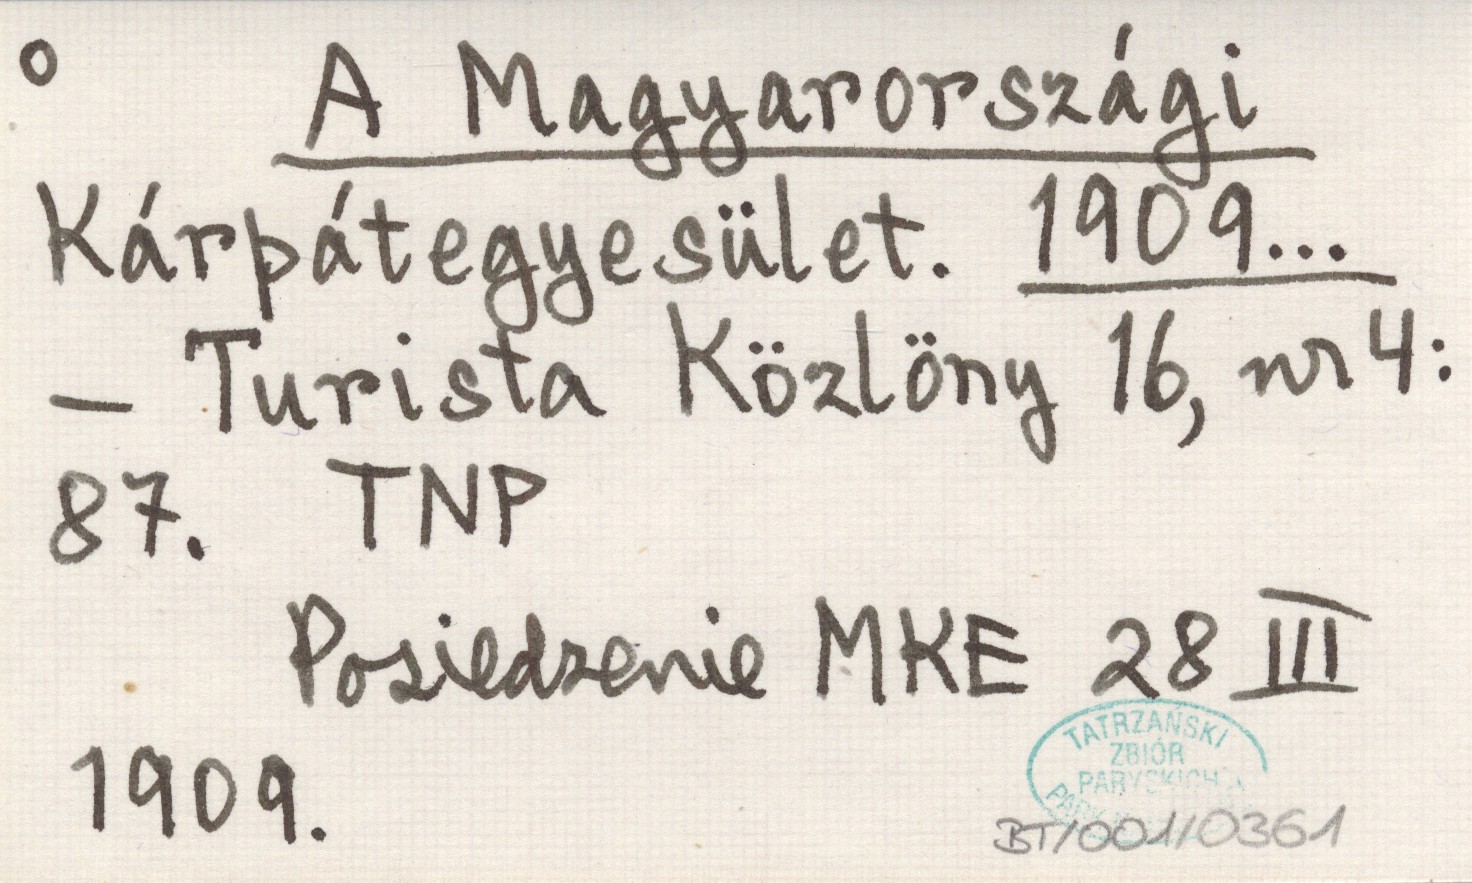 o A Magyarországi
Kárpátegyesület. 1909...
— Turista Közlöny 16, nr 4:
87. TNP
Posiedzenie MKE 28 III
1909.
TATRZAŃSKI
ZBIÓR
PARYSKICH
BT/001/0361